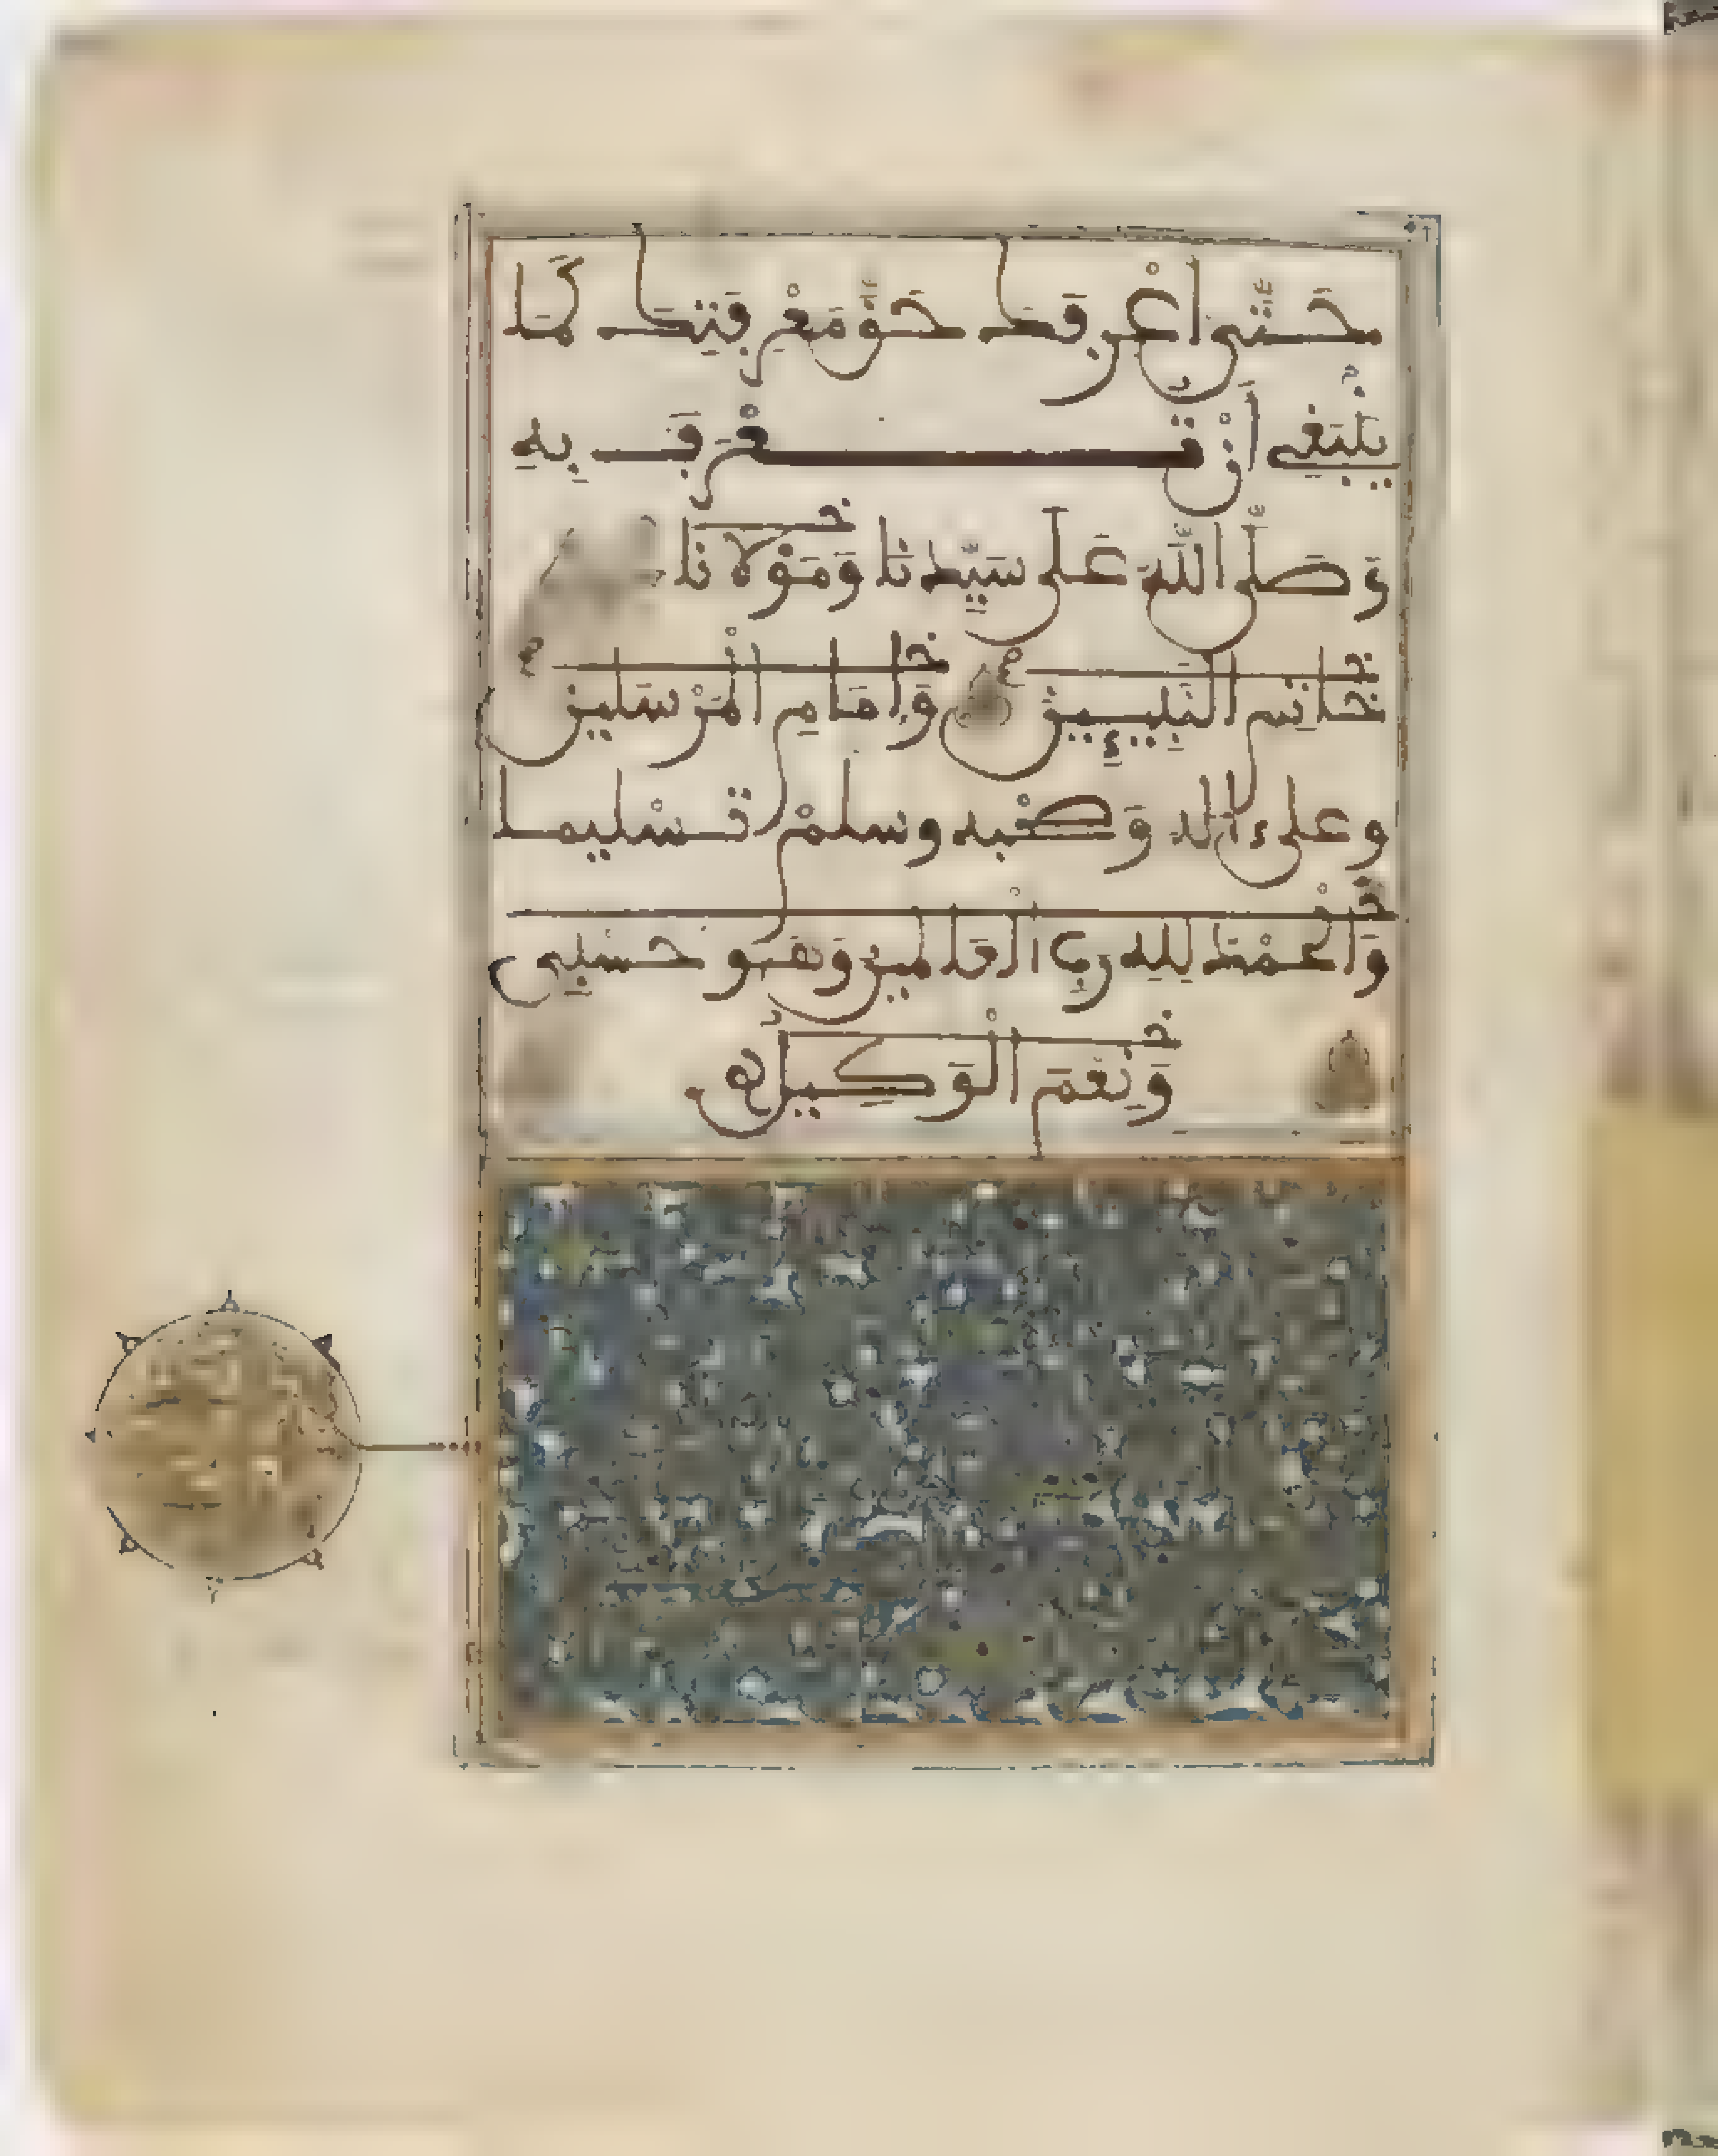 حَتَّى أَعْرِفَكَ حَقَّ مَعْرِفَتِكَ كَمَا
يَنْبَغِي أَنْ تُعْرَفَ بِهِ
وَصَلَّى اللَّهُ عَلَى سَيِّدِنَا وَمَوْلَانَا
خَاتِمِ النَّبِيِّينَ وَإِمَامِ الْمُرْسَلِينَ
وعلى ءاله وَصَحْبه وسلمْ تسْليما
وَالْحَمْدُ لِلهِ رَبِّ الْعَالَمِينَ وَهُوَ حَسْبِي
وَنِعْمَ الْوَكِيلُ